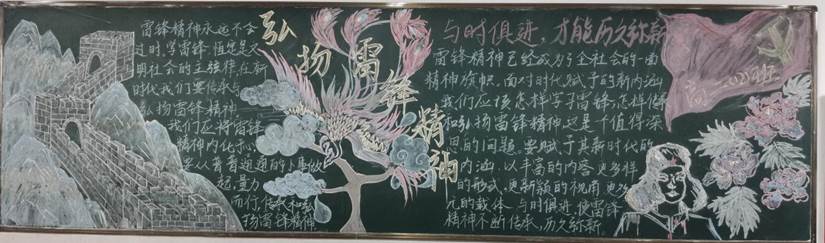 弘扬雷锋精神
雷锋精神永远不会
过时,学雷锋恒定是文
明社会的主旋律,在新
时代我们要传承与
弘扬雷锋精神
我们应将雷锋
精神内化于心
要从着着迢迢的小事做
起,量力
而行,传承和弘
扬雷锋精神
与时俱进,才能历久弥新
雷锋精神已经成为了全社会的一面
精神旗帜。面对时代赋予的新内涵
我们应该怎样学习雷锋,怎样传承
和弘扬雷锋精神,这是个值得深
思的问题。要赋予其新时代的
内涵,以丰富的内容,更多样
的形式,更新颖的视角,更多
元的载体,与时俱进,使雷锋
精神不断传承,历久弥新
高一
班